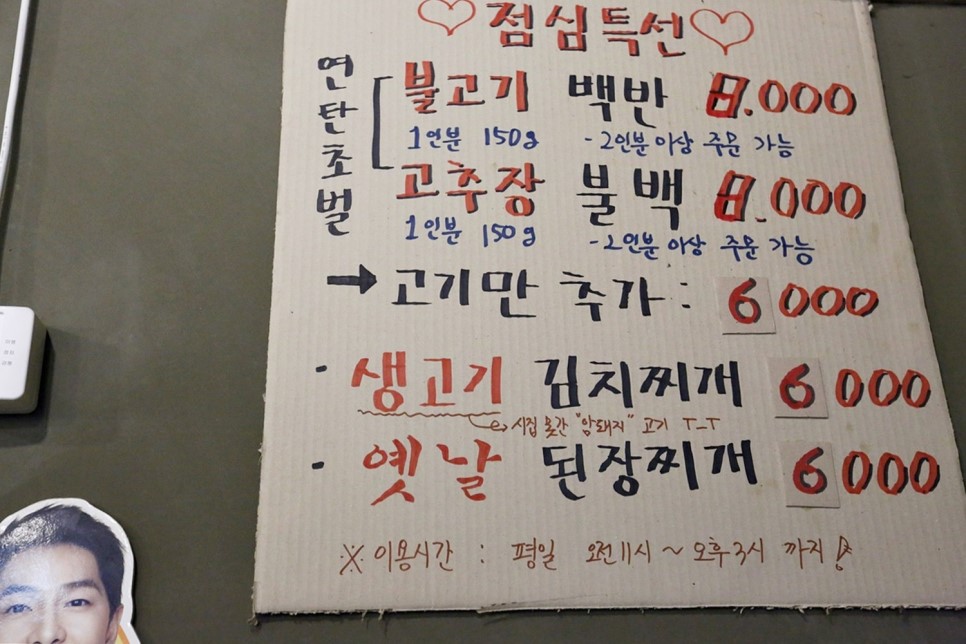 ♡점심특선♡
연탄초벌
불고기 백반 8.000
1인분 150g -2인분 이상 주문 가능
고추장 불백 8.000
1인분 150g -2인분 이상 주문 가능
→고기만 추가: 6000
· 생고기 김치찌개 6000
시집 못간 "암돼지" 고기 T_T
· 옛날 된장찌개 6000
※이용시간 : 평일 오전11시 ~ 오후3시 까지!